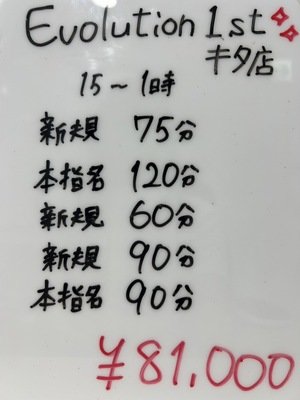 Evolution 1st
キタ店
15～1時
新規 75分
本指名 120分
新規 60分
新規 90分
本指名 90分
¥81,000